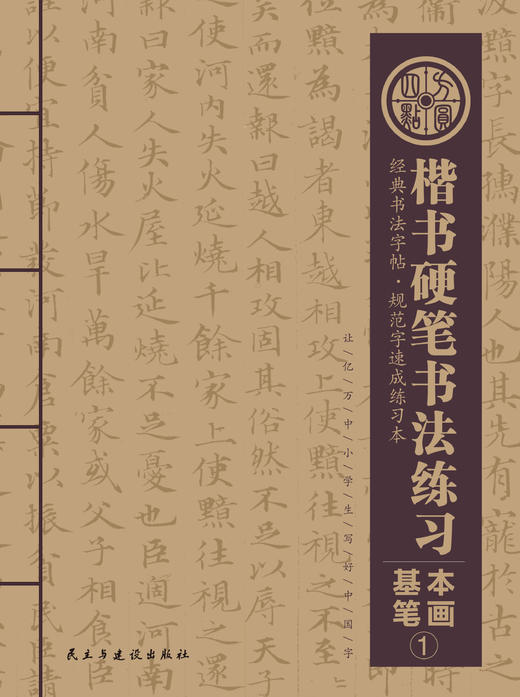 方圓
四點
楷书硬笔书法练习
经典书法字帖·规范字速成练习本
基本
笔画
①
让/亿/万/中/小/学/生/写/好/中/国/字
民主与建设出版社
黯字長孺濮陽人也其先有寵於古之
衛
位黯為謁者東越相攻上使黯往視之不至
而還報曰越人相攻固其俗然不足以辱天
使河内失火延燒千餘家上使黯往視之還
曰家人失火屋比延燒不足憂也臣過河南
河南貧人傷水旱萬餘家或父子相食臣
以便宜持節發河南倉粟以振貧民臣請